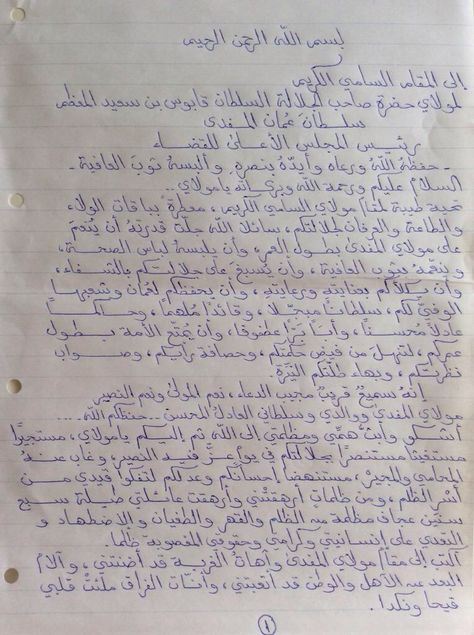 بسم الله الرحمن الرحيم
إلى المقام السامي الكريم
لمولاي حضرة صاحب الجلالة السلطان قابوس بن سعيد المعظم
سلطان عُمان المفدى
رئيس المجلس الأعلى للقضاء
- حفظه الله ورعاه وأيّده بنصره وألبسه ثوب العافية -
السلام عليكم ورحمة الله وبركاته يا مولاي ..
تحية طيبة لمقام مولاي السامي الكريم، معطرة بباقات الولاء
والطاعة والعرفان لجلالتكم، سائلا الله جلّت قدرته أن يُنعم
على مولاي المفدى بطول العمر، وأن يلبسه لباس الصحة،
و ينعّمه بثوب العافية، وأن يسبغ على جلالتكم بالشفاء،
وأن يكلأكم بعنايته ورعايته، وأن يحفظكم لعُمان وشعبها
الوفيّ لكم، سلطاناً مبجّلا، وقائداً مُلهماً، وحاكماً
عادلاً مُحسناً، وأباً برّاً عطوفاً، وأن يُمتّع الأمة بطول
عمركم، لتنهل من فيض حكمتكم، وحصافة رأيكم، وصواب
نظرتكم، وبهاء طلّتكم النيّرة.
إنه سميعٌ قريبٌ مجيب الدعاء، نعم المولى ونعم النصير
مولاي المفدى ووالدي وسلطاني العادل المحسن .. حفظكم الله ....
أشكو وأبث همّي ومظلمتي إلى الله ثم إليكم يا مولاي، مستجيراً
مستغيثاً مستنصراً بجلالتكم في يومٍ عزّ فيه النصير، وغاب عنه
المحامي والمجير، مستنهضاً إحسانكم وعدلكم لتفكوا قيدي من
أسْر الظلم، ومن ظلماتٍ أرهقتني وأرهقت عائلتي طيلة سبع
سنين عجاف مظلمة من الظلم والقهر والطغيان و الاضطهاد و
التعدي على إنسانيتي وكرامتي وحقوقي المغصوبة ظلماً.
أكتب إلى مقام مولاي المفدى وآهات الغربة قد أضنتني، وآلام
البعد عن الأهل والوطن قد أتعبتني، وأنّات الفراق ملئت قلبي
قيحا ونكدا.
١